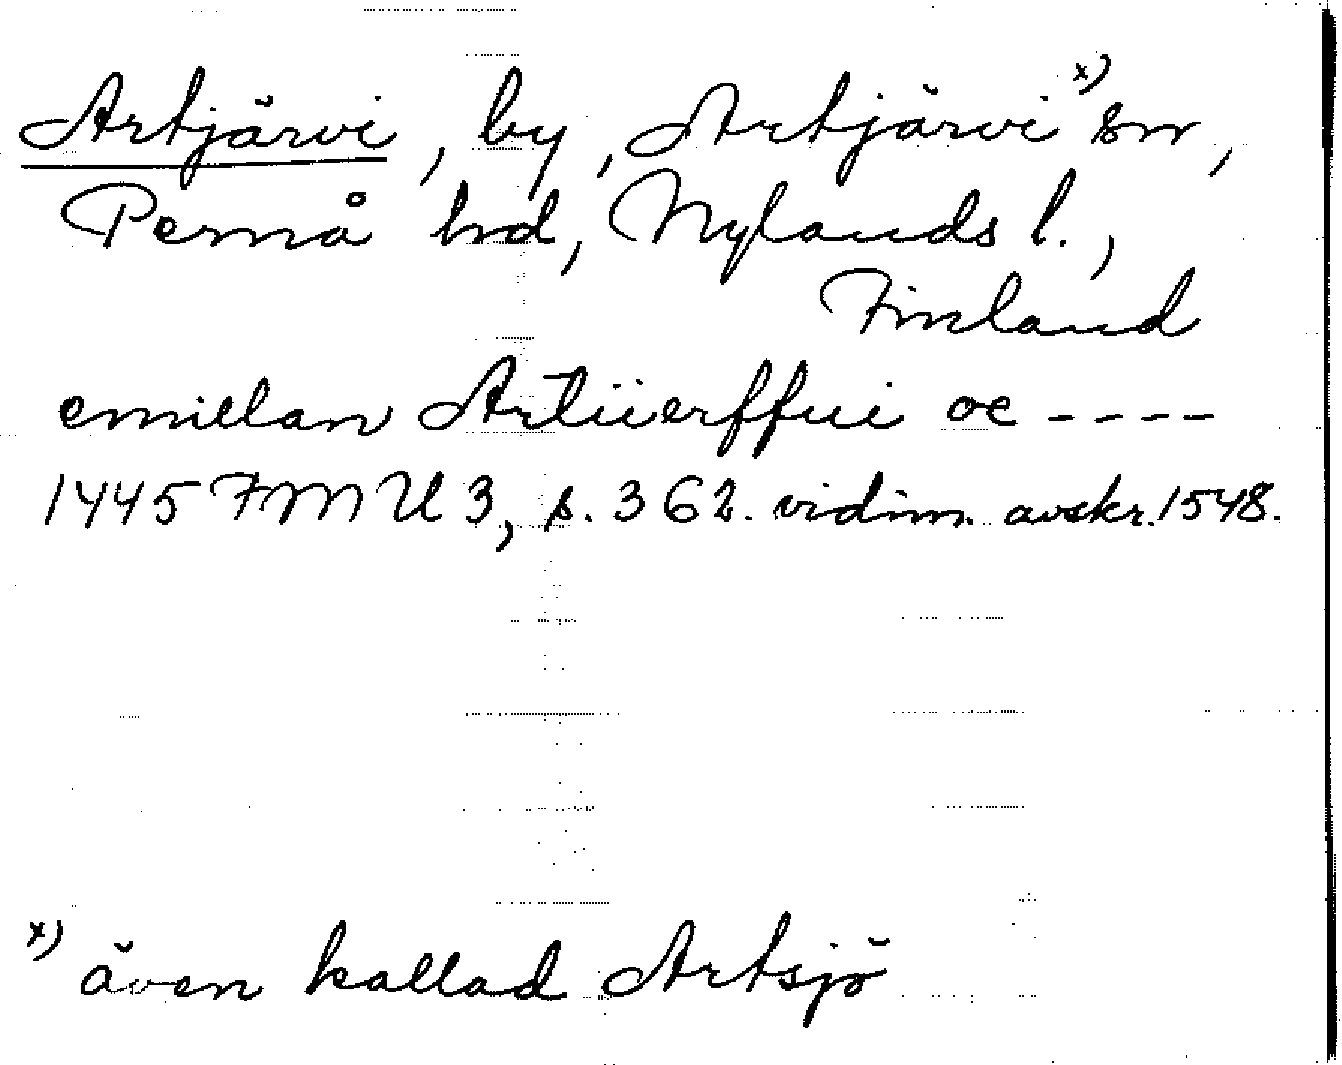 Artjärvi, by, Artjärvi x) sn,
Pernå hd, Nylands l.,
Finland
emillan Artiierffui oc ----
1445 FMU 3, s. 362. vidim. avskr. 1548.
x) även kallad Artsjö